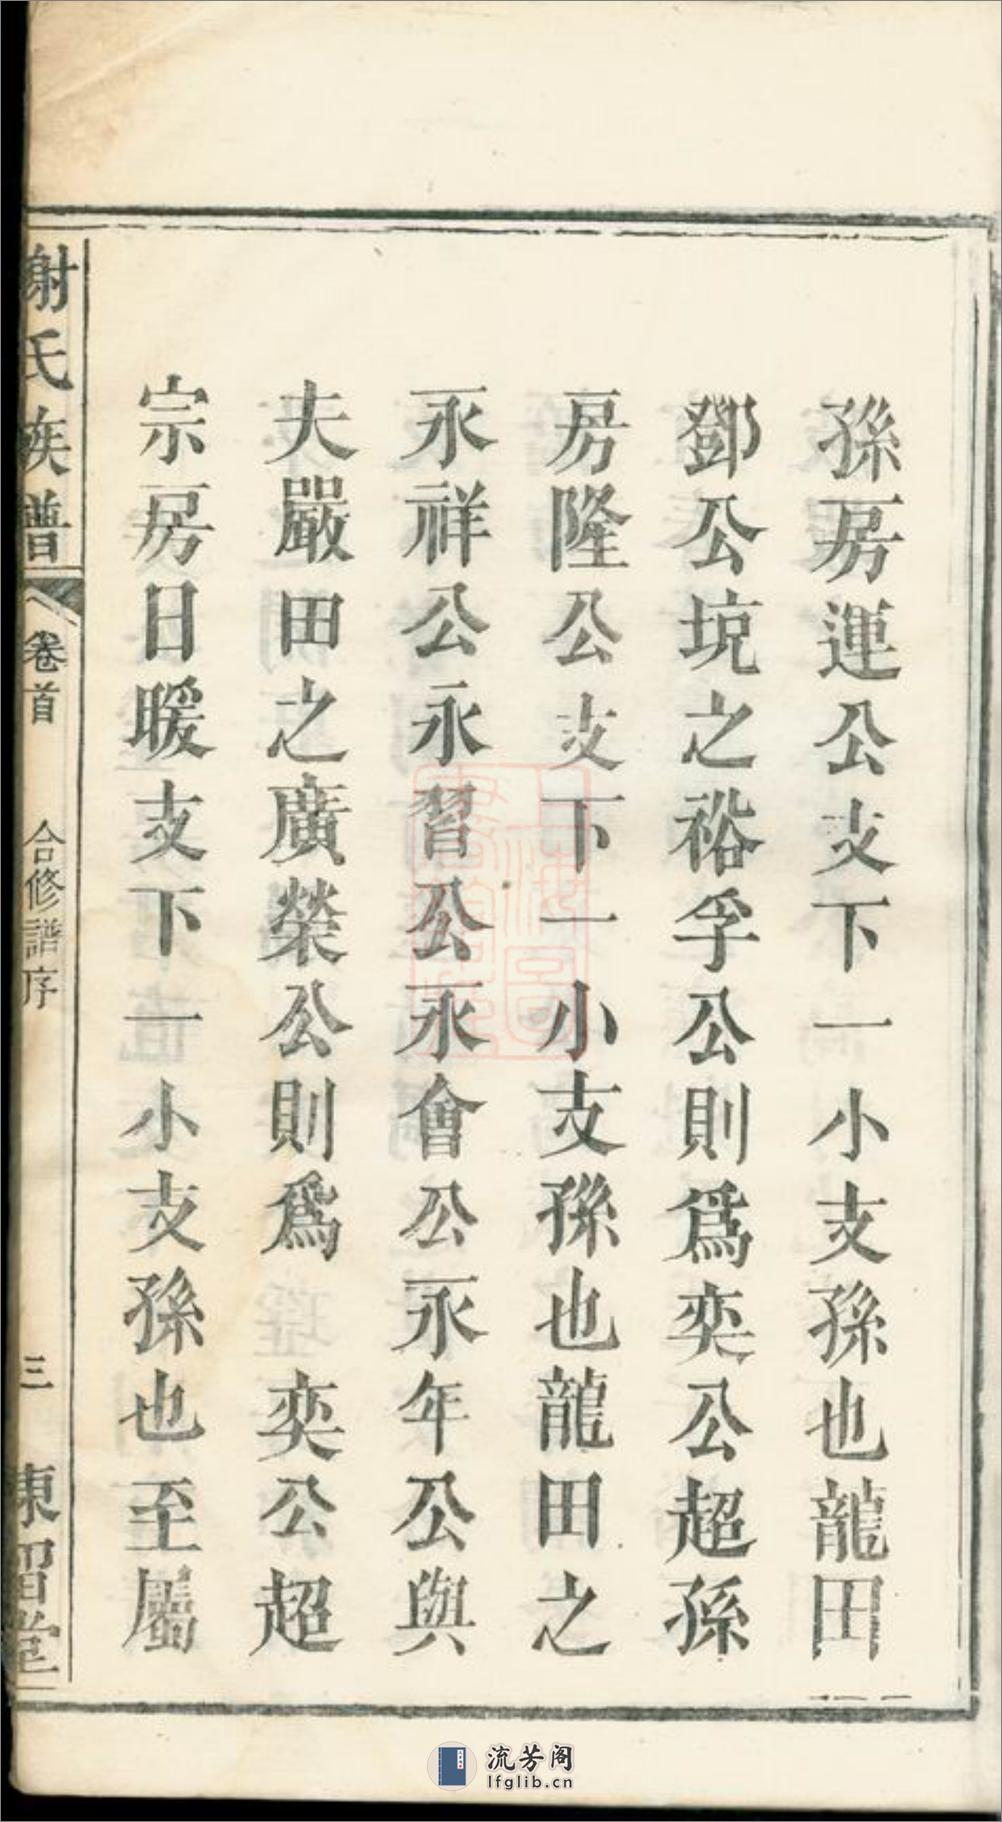 孫房運公支下一小支孫也龍田
鄧公坑之裕孚公則爲奕公超孫
房隆公支下一小支孫也龍田之
永祥公永習公永會公永年公與
大嚴田之廣榮公則爲 奕公超
宗房日暖支下一小支孫也至屬
謝氏族譜 卷首 合修譜序 三 東留堂
流芳阁
lfglib.cn